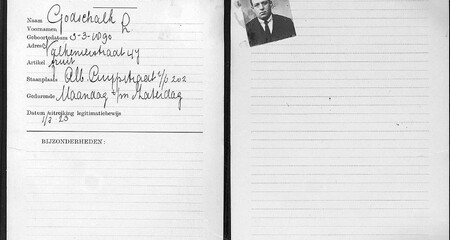 Naam Godschalk L
Voornamen
Geboortedatum 3-3-1890
Adres Valkenierstraat 47
Artikel fruit
Staanplaats Alb. Cuypstraat t/o 202
Gedurende Maandag t/m Zaterdag
Datum uitreiking legitimatiebewijs
BIJZONDERHEDEN: